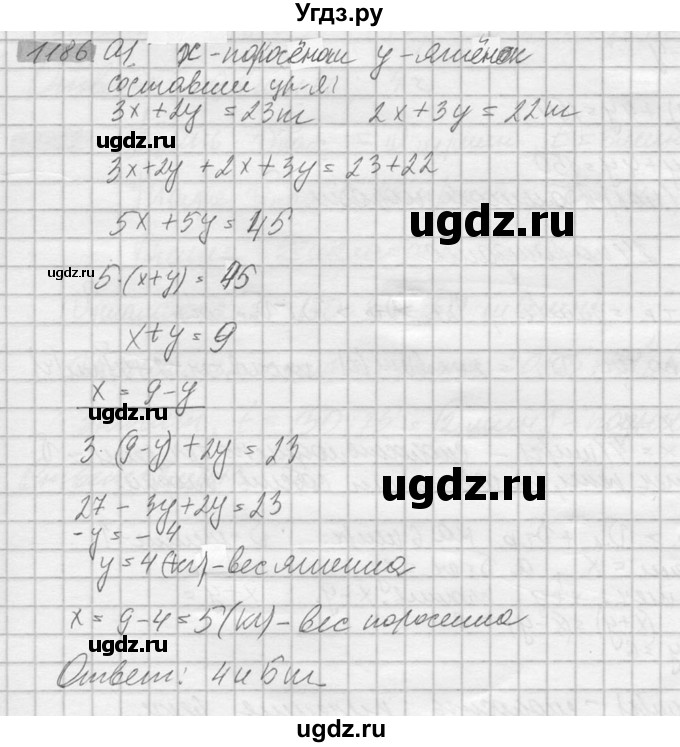 Угдз.ру
1186 а). х - поросёнок у - ягнёнок
составим ур-я:
3x + 2y = 23кг 2x + 3y = 22кг
ugdz.ru
3x + 2y + 2x + 3y = 23 + 22
5x + 5y = 45
ugdz.ru
ugdz.ru
5·(x+y) = 45
x + y = 9
x = 9 - y
ugdz.ru
3·(9-y) + 2y = 23
ugdz.ru
27 - 3y + 2y = 23
-y = -4
y = 4 (кг) - вес ягненка
x = 9 - 4 = 5 (кг) - вес поросенка
ugdz.ru
Ответ: 4 и 5 кг
ugdz.ru
ugdz.ru